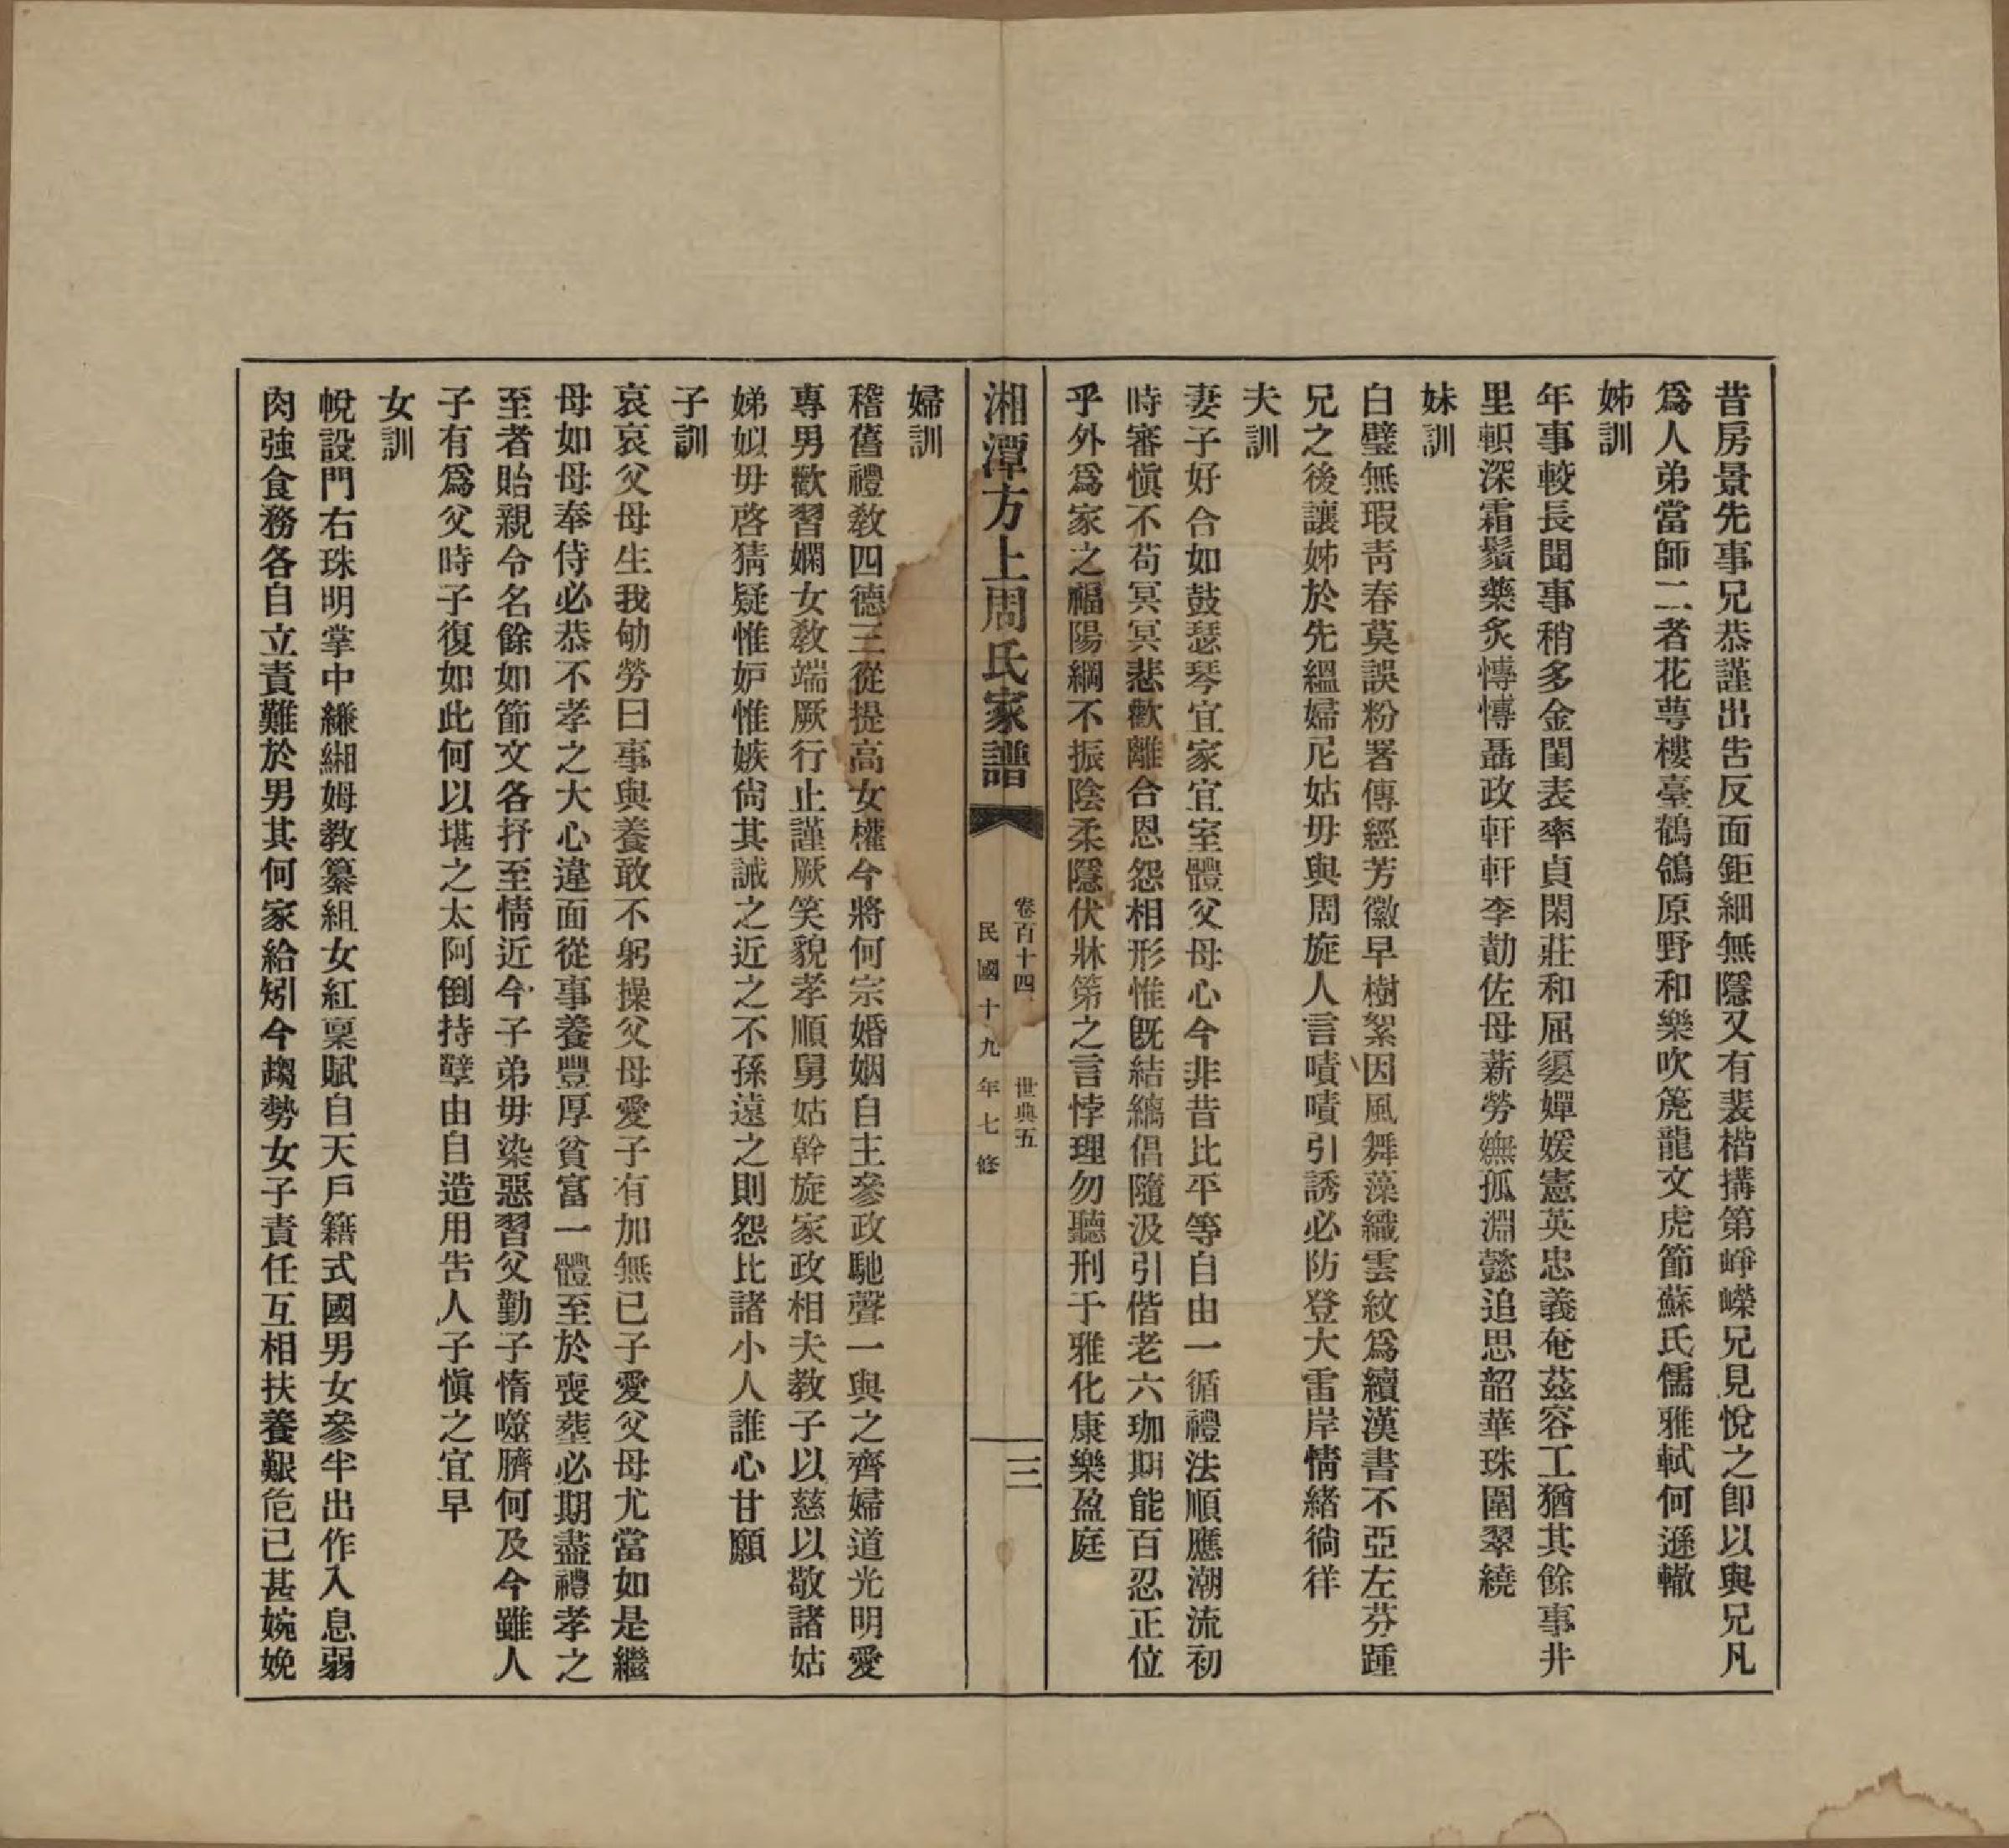 昔房景先事兄恭謹出告反面鉅細無隱又有裴楷搆第崢嶸兄見悅之卽以與兄凡
爲人弟當師二者花萼樓臺鶺鴒原野和樂吹篪龍文虎節蘇氏儒雅軾何遜轍
姊訓
年事較長聞事稍多金閨表率貞閑莊和屈嬃嬋媛憲英忠義奄茲容工猶其餘事井
里軹深霜鬚藥炙慱慱聶政軒軒李勣佐母薪勞嫵孤淵懿追思韶華珠圍翠繞
妹訓
白璧無瑕靑春莫誤粉署傳經芳徽早樹絮因風舞藻織雲紋爲續漢書不亞左芬踵
兄之後讓姊於先縕婦尼姑毋與周旋人言嘖嘖引誘必防登大雷岸情緖徜徉
夫訓
妻子好合如鼓瑟琴宜家宜室體父母心今非昔比平等自由一循禮法順應潮流初
時審愼不苟冥冥悲歡離合恩怨相形惟旣結縭倡隨汲引偕老六珈期能百忍正位
乎外爲家之福陽綱不振陰柔隱伏牀第之言悖理勿聽刑于雅化康樂盈庭
湘潭方上周氏家譜
卷百十四 世典五
民國十九年七修
三
婦訓
稽舊禮敎四德三從提高女權今將何宗婚姻自主參政馳聲一與之齊婦道光明愛
專男歡習嫻女敎端厥行止謹厥笑貌孝順舅姑幹旋家政相夫教子以慈以敬諸姑
娣姒毋啓猜疑惟妒惟嫉尙其誡之近之不孫遠之則怨比諸小人誰心甘願
子訓
哀哀父母生我劬勞曰事與養敢不躬操父母愛子有加無已子愛父母尤當如是繼
母如母奉侍必恭不孝之大心違面從事養豐厚貧富一體至於喪塟必期盡禮孝之
至者貽親令名餘如節文各抒至情近今子弟毋染惡習父勤子惰噬臍何及今雖人
子有爲父時子復如此何以堪之太阿倒持孽由自造用告人子愼之宜早
女訓
帨設門右珠明掌中縑緗姆教纂組女紅稟賦自天戶籍式國男女參半出作入息弱
肉強食務各自立責難於男其何家給矧今趨勢女子責任互相扶養艱危已甚婉娩